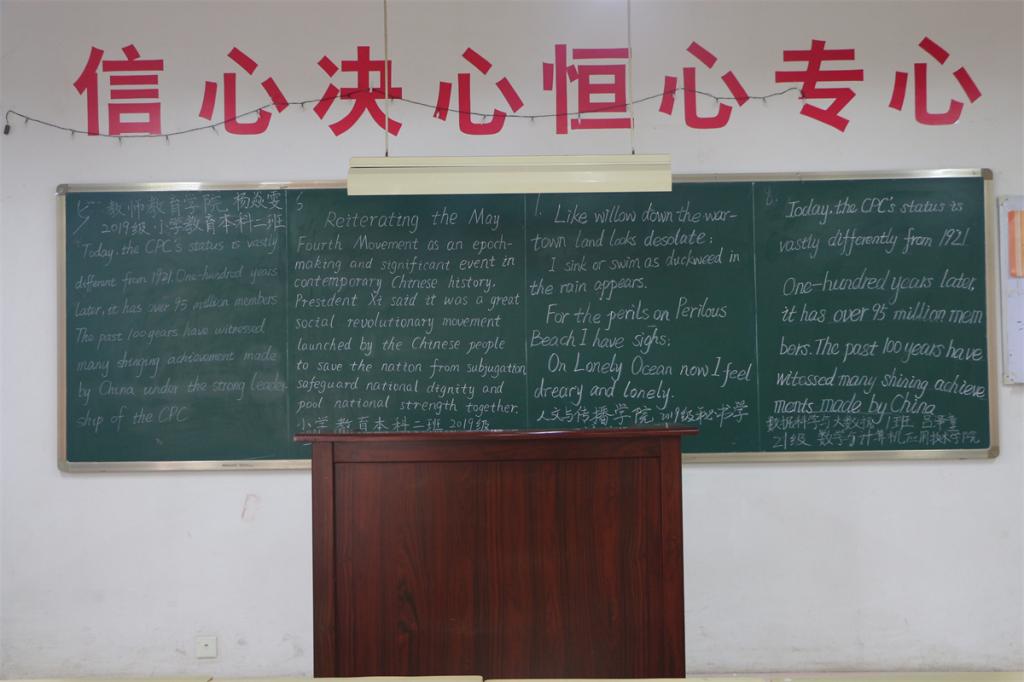 信心决心恒心专心
教师教育学院 杨焱雯
2019级 小学教育本科二班
Today, the CPC's status is vastly
different from 1921. One-hundred years
later, it has over 95 million members
The past 100 years have witnessed
many shinging achievement made
by China under the strong leader
ship of the CPC
Reiterating the May
Fourth Movement as an epoch-
making and significant event in
contemporary Chinese history,
President Xi said it was a great
social revolutionary movement
launched by the Chinese people
to save the nation from subjugation
safeguard national dignity and
pool national strength together.
小学教育本科二班 2019级
1.
Like willow down the war-
town land looks desolate;
I sink or swim as duckweed in
the rain appears.
For the perils on Perilous
Beach I have sighs;
On Lonely Ocean now I feel
dreary and lonely.
人文与传播学院 2019级秘书学
8.
Today, the CPC's status is
vastly differently from 1921.
One-hundred years later,
it has over 95 million mem
bers. The past 100 years have
witessed many shining achieve
ments made by China
数据科学与大数据 1班
21级 数学与计算机应用技术学院